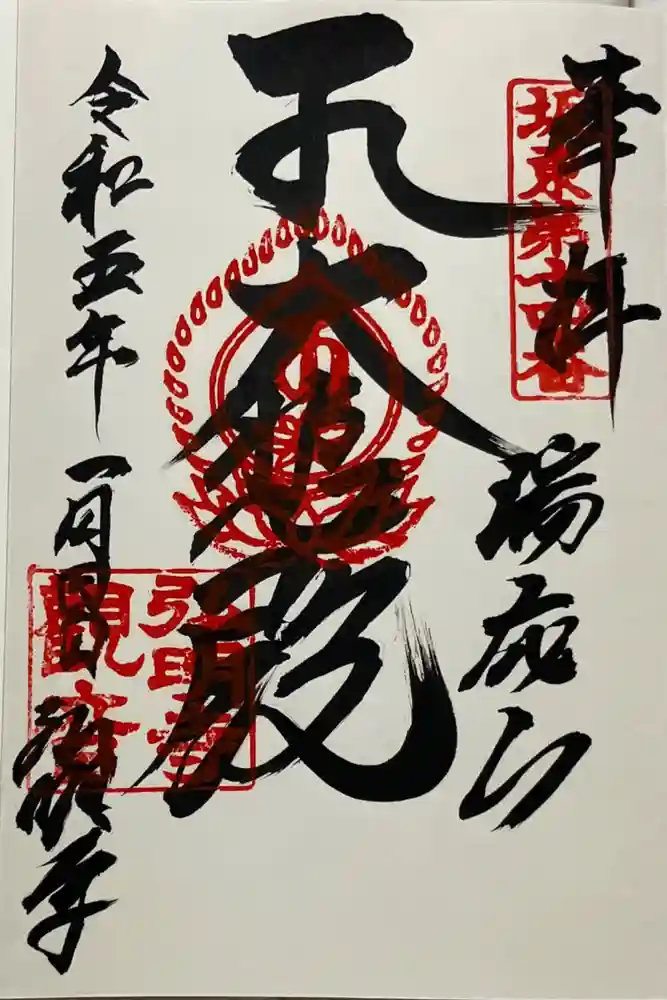 奉拝
坂東第十四番
瑞應山
大悲殿
令和五年一月
弘明寺
觀音
弘明寺